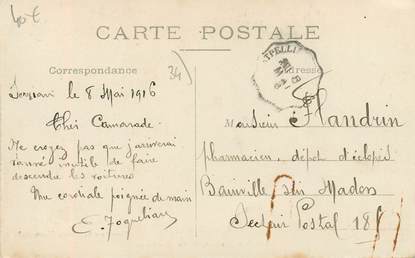 40 €
CARTE POSTALE
Correspondance
34
Adresse
TPELLI
le 8 Mai 1916
Cher Camarade.
Ne croyez pas que j'arriverai
inutile de faire
descendre les voitures
Une cordiale poignée de main
E.
Monsieur Flandrin
pharmacien, dépot d'éclopés
Bainville sur Madon
Secteur Postal 18